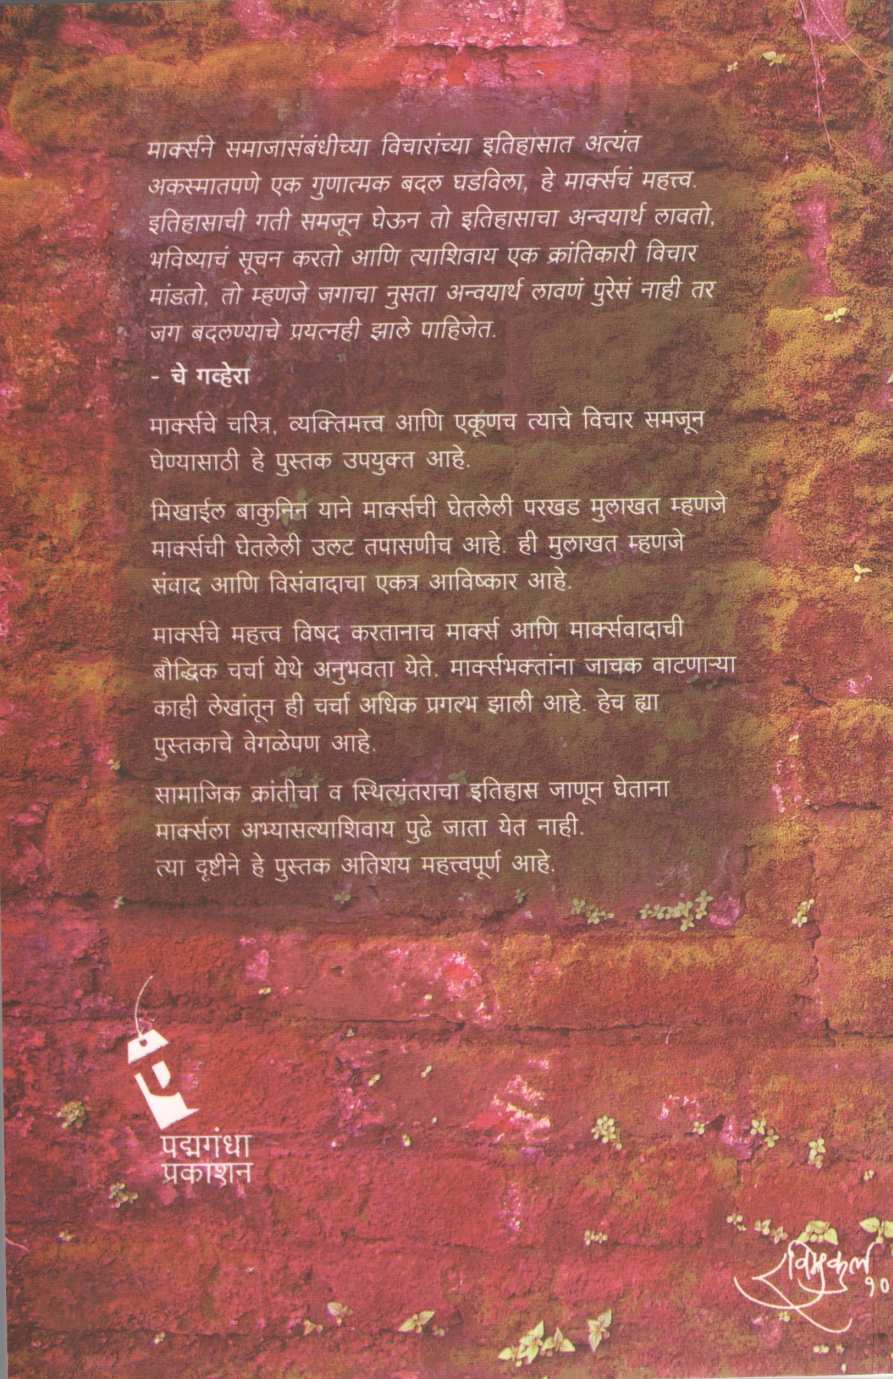 मार्क्सने समाजासंबंधीच्या विचारांच्या इतिहासात अत्यंत
अकस्मातपणे एक गुणात्मक बदल घडविला, हे मार्क्सचं महत्त्व.
इतिहासाची गती समजून घेऊन तो इतिहासाचा अन्वयार्थ लावतो,
भविष्याचं सूचन करतो आणि त्याशिवाय एक क्रांतिकारी विचार
मांडतो, तो म्हणजे जगाचा नुसता अन्वयार्थ लावणं पुरेसं नाही तर
जग बदलण्याचे प्रयत्नही झाले पाहिजेत.
- चे गव्हेरा
मार्क्सचे चरित्र, व्यक्तिमत्त्व आणि एकूणच त्याचे विचार समजून
घेण्यासाठी हे पुस्तक उपयुक्त आहे.
मिखाईल बाकुनिन याने मार्क्सची घेतलेली परखड मुलाखत म्हणजे
मार्क्सची घेतलेली उलट तपासणीच आहे. ही मुलाखत म्हणजे
संवाद आणि विसंवादाचा एकत्र आविष्कार आहे.
मार्क्सचे महत्त्व विषद करतानाच मार्क्स आणि मार्क्सवादाची
बौद्धिक चर्चा येथे अनुभवता येते. मार्क्सभक्तांना जाचक वाटणाऱ्या
काही लेखांतून ही चर्चा अधिक प्रगल्भ झाली आहे. हेच ह्या
पुस्तकाचे वेगळेपण आहे.
सामाजिक क्रांतीचा व स्थित्यंतराचा इतिहास जाणून घेताना
मार्क्सला अभ्यासल्याशिवाय पुढे जाता येत नाही.
त्या दृष्टीने हे पुस्तक अतिशय महत्त्वपूर्ण आहे.
पद्मगंधा
प्रकाशन
रविमुकुल
१०